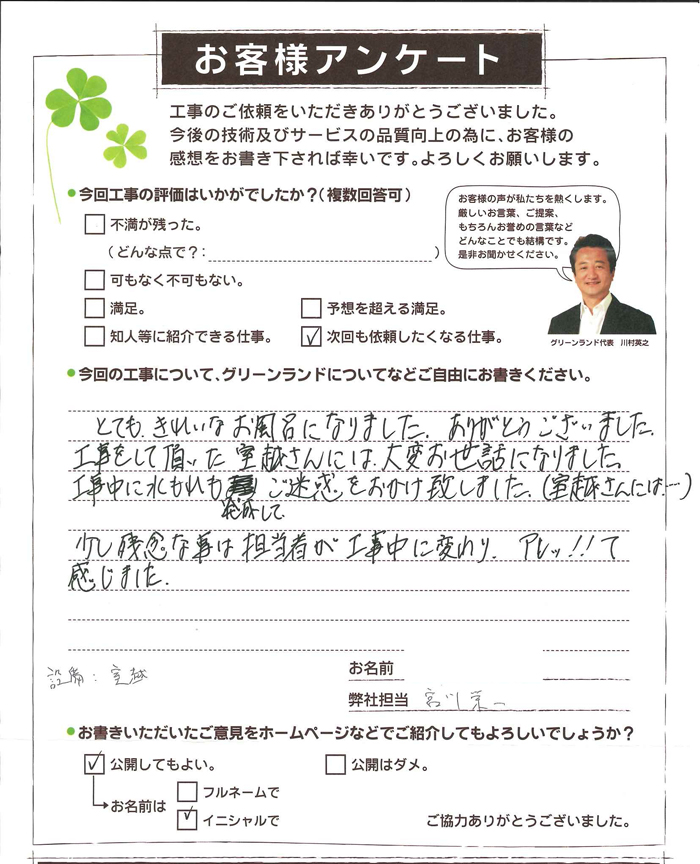 お客様アンケート
工事のご依頼をいただきありがとうございました。
今後の技術及びサービスの品質向上の為に、お客様の
感想をお書き下されば幸いです。よろしくお願いします。
●今回工事の評価はいかがでしたか?(複数回答可)
不満が残った。
(どんな点で?: )
可もなく不可もない。
満足。
予想を超える満足。
知人等に紹介できる仕事。
次回も依頼したくなる仕事。
お客様の声が私たちを熱くします。
厳しいお言葉、ご提案、
もちろんお誉めの言葉など
どんなことでも結構です。
是非お聞かせください。
グリーンランド代表 川村英之
●今回の工事について、グリーンランドについてなどご自由にお書きください。
とても きれいな お風呂になりました。ありがとうございました。
工事をして頂いた 室越さんには、大変お世話になりました。
工事中に水もれも ご迷惑をおかけ致しました。(室越さんには…)
発生して
少し残念な事は 担当者が 工事中に変わり、アレッ!!て
感じました。
設備:室越
お名前
弊社担当 宮川栄一
●お書きいただいたご意見をホームページなどでご紹介してもよろしいでしょうか?
公開してもよい。
公開はダメ。
お名前は
フルネームで
イニシャルで
ご協力ありがとうございました。